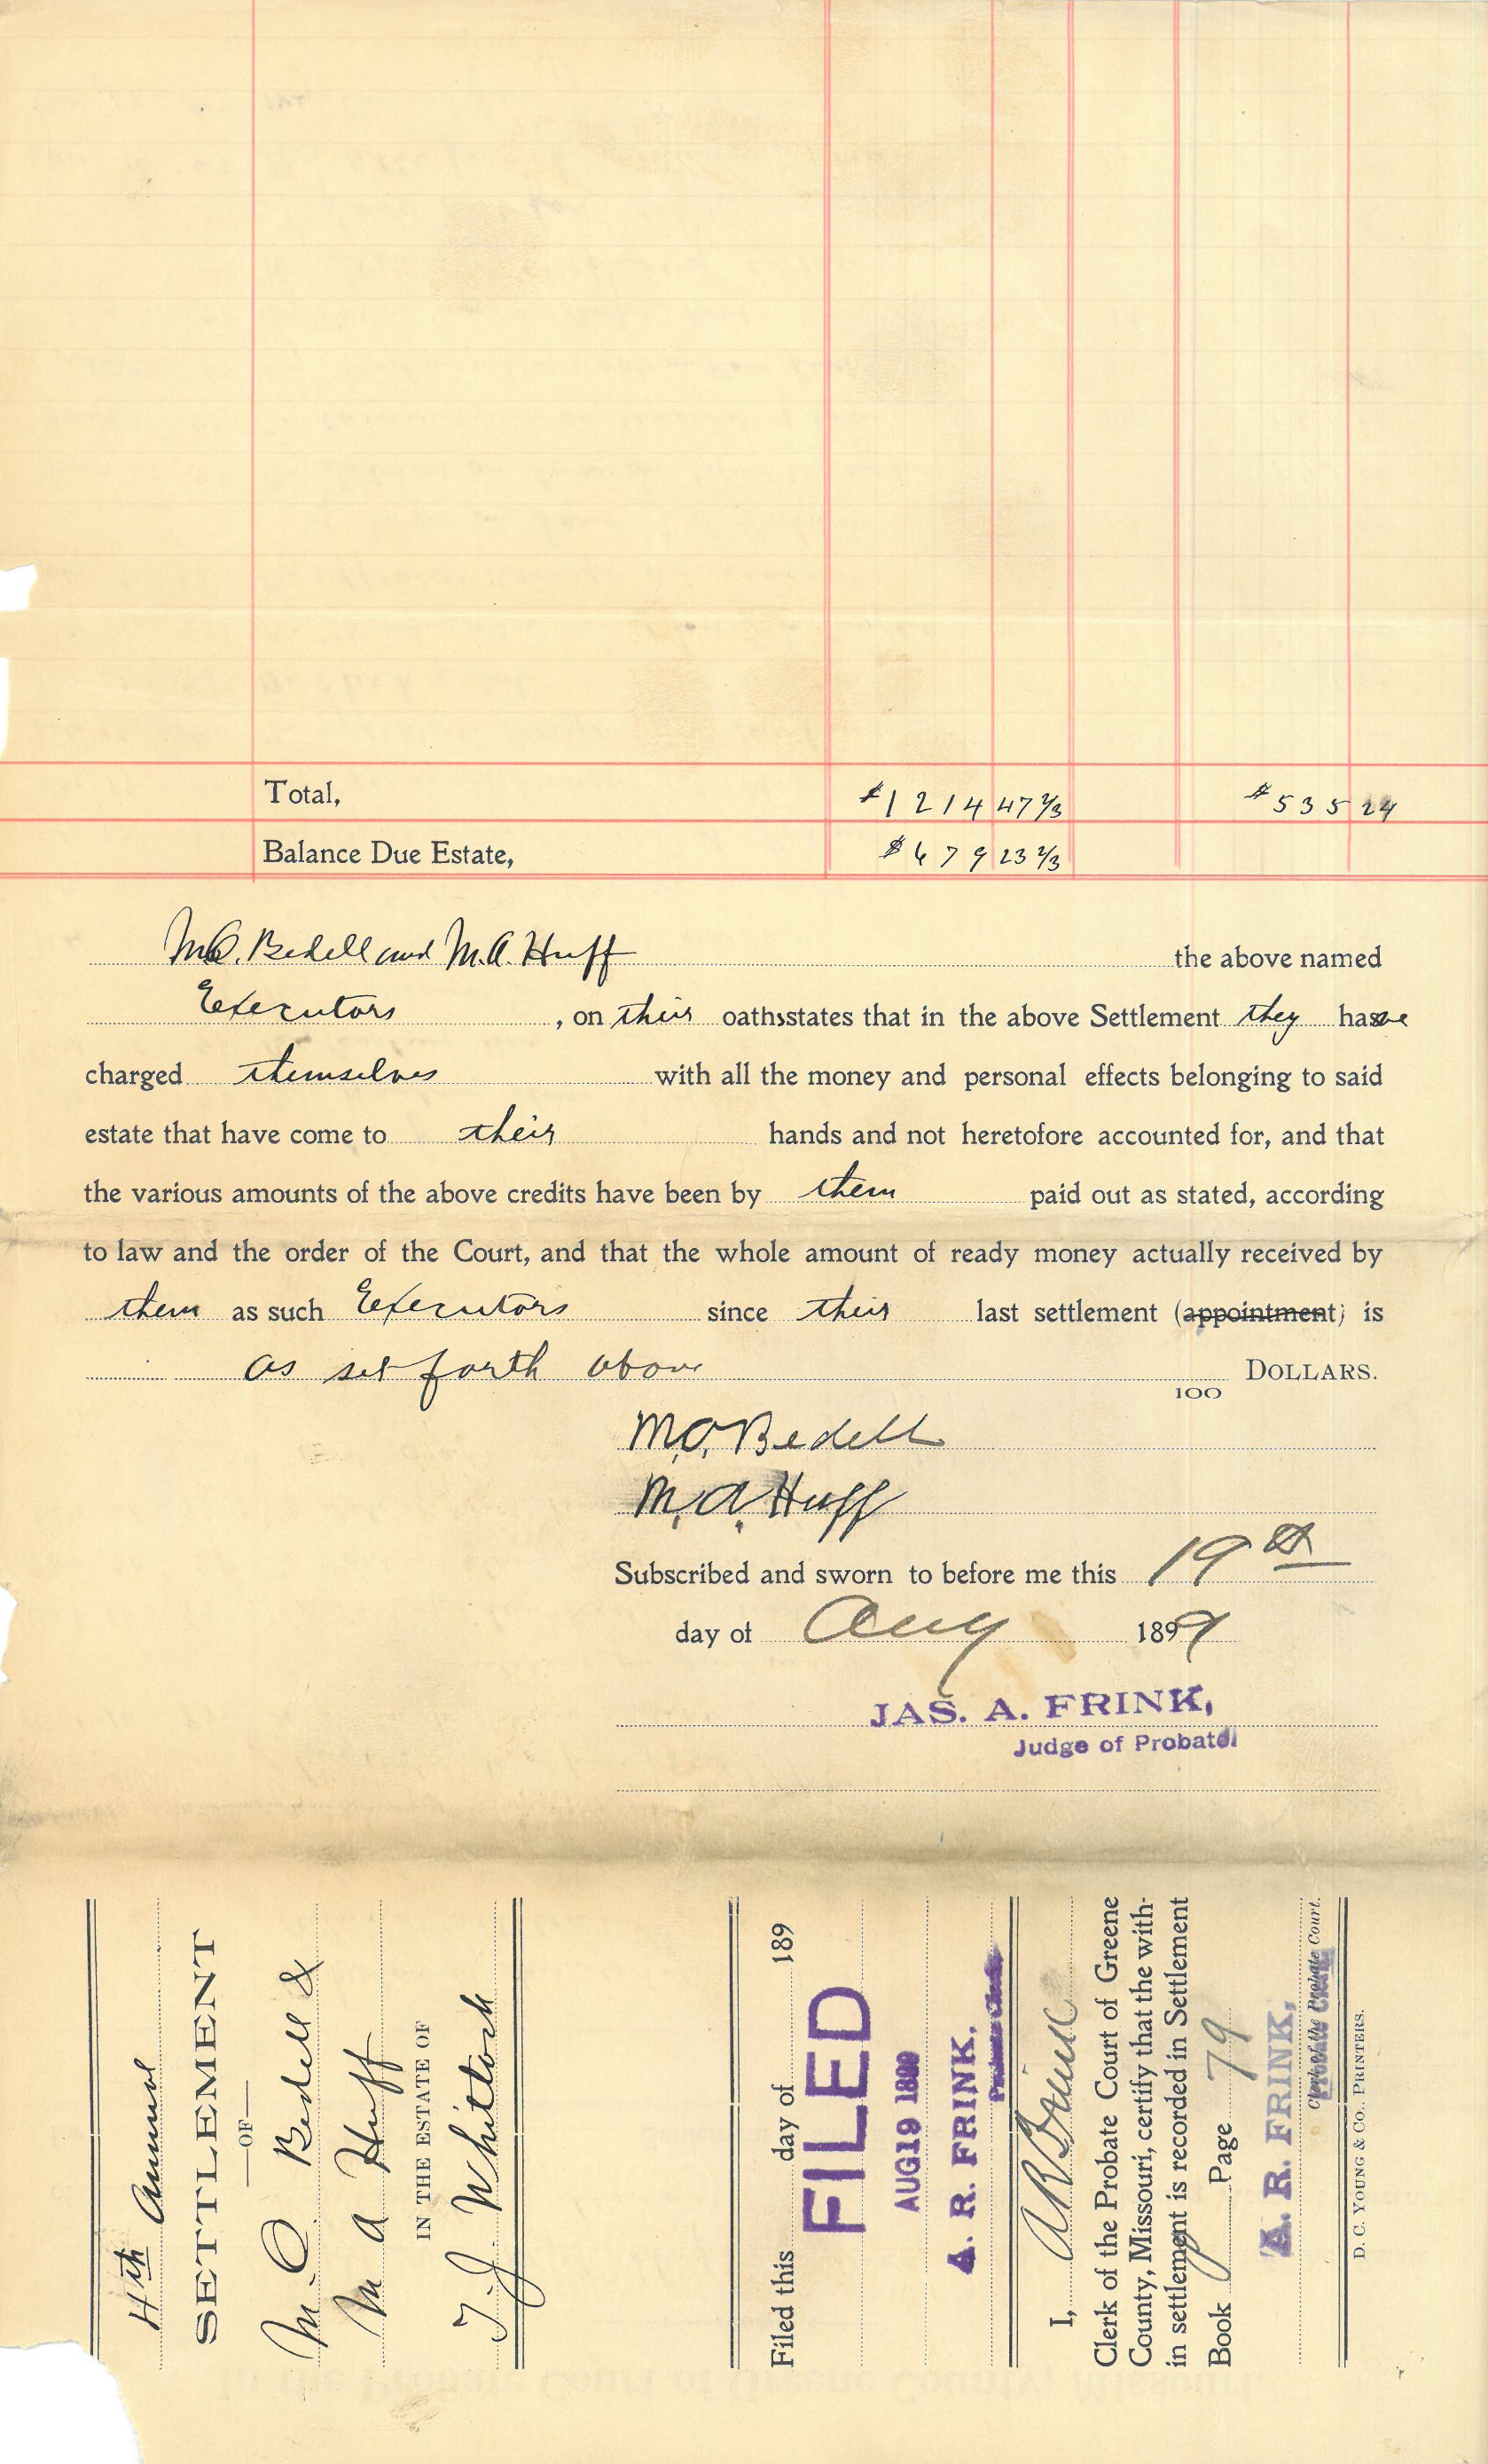 Total, $1214 47 2/3 $535 24
Balance Due Estate, $679 23 2/3
M.O. Bedell and M.A. Huff the above named
Executors , on their oaths states that in the above Settlement they have
charged themselves with all the money and personal effects belonging to said
estate that have come to their hands and not heretofore accounted for, and that
the various amounts of the above credits have been by them paid out as stated, according
to law and the order of the Court, and that the whole amount of ready money actually received by
them as such Executors since their last settlement (appointment) is
as set forth above 100 DOLLARS.
M.O. Bedell
M.A. Huff
Subscribed and sworn to before me this 19th
day of Aug 1899
JAS. A. FRINK,
Judge of Probate
4th Annual
SETTLEMENT
—OF—
M. O Bedell &
M A Huff
IN THE ESTATE OF
T. J. Whitlock
Filed this day of 189
FILED
AUG 19 1899
A. R. FRINK,
Probate Clerk
I,
Clerk of the Probate Court of Greene
County, Missouri, certify that the with-
in settlement is recorded in Settlement
Book Page 79
A. R. FRINK,
Clerk of the Probate Court.
Probate Clerk
D. C. YOUNG & CO., PRINTERS.